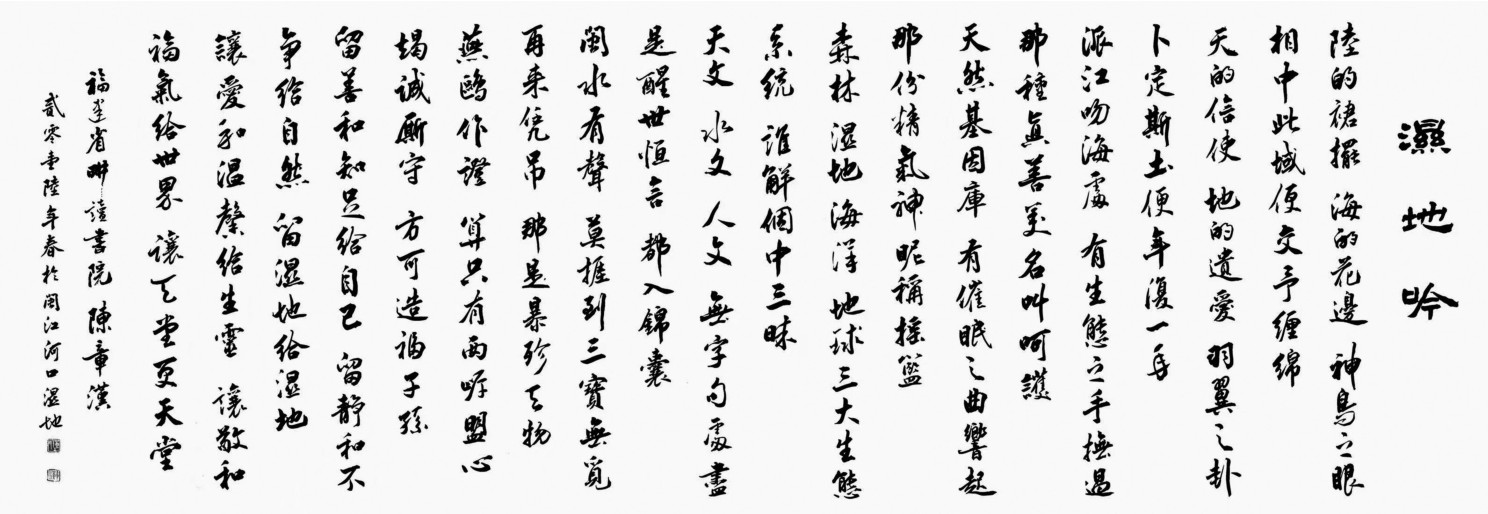 濕地吟
陸的裙擺 海的花邊 神鳥之眼
相中此域便交予缠綿
天的信使 地的遺愛 羽翼之卦
卜定斯土便年復一年
派江吻海處 有生態之手撫過
那種真善美名叫呵護
天然基因庫 有催眠之曲響起
那份精氣神昵稱搖籃
森林 湿地 海洋 地球三大生態
系統 誰解個中三昧
天文 水文 人文 無字句處盡
是醒世恒言 都入錦囊
閩水有聲 莫捱到三寶無覓
再来凭吊 那是暴殄天物
燕鷗作證 算只有两岸盟心
竭誠厮守 方可造福子孫
留善和知足給自己 留静和不
争给自然 留湿地给湿地
讓愛和温馨给生靈 讓敬和
福氣给世界 讓天堂更天堂
福建省耕讀書院 陳章漢
贰零壹陸年春於閩江河口湿地